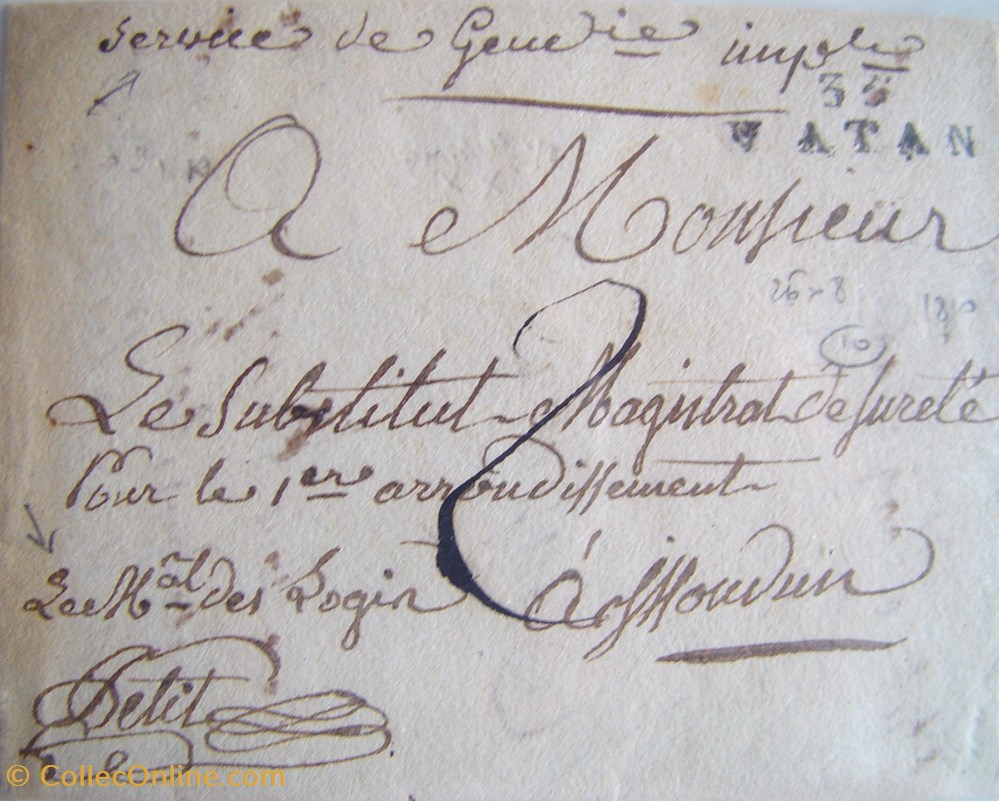 Service de Gendie imple
35
VATAN
A Monsieur
26 x 8
1810
10
Le Substitut Magistrat de Sureté
Pour le 1er arrondissement
Le Mal des Logis
à Issoudun
Petit
© CollecOnline.com